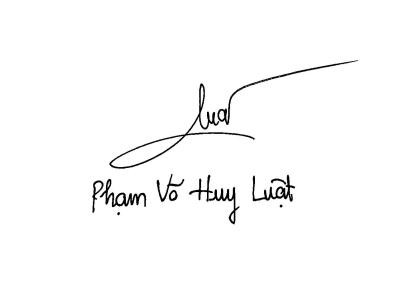 Luật
Phạm Võ Huy Luật